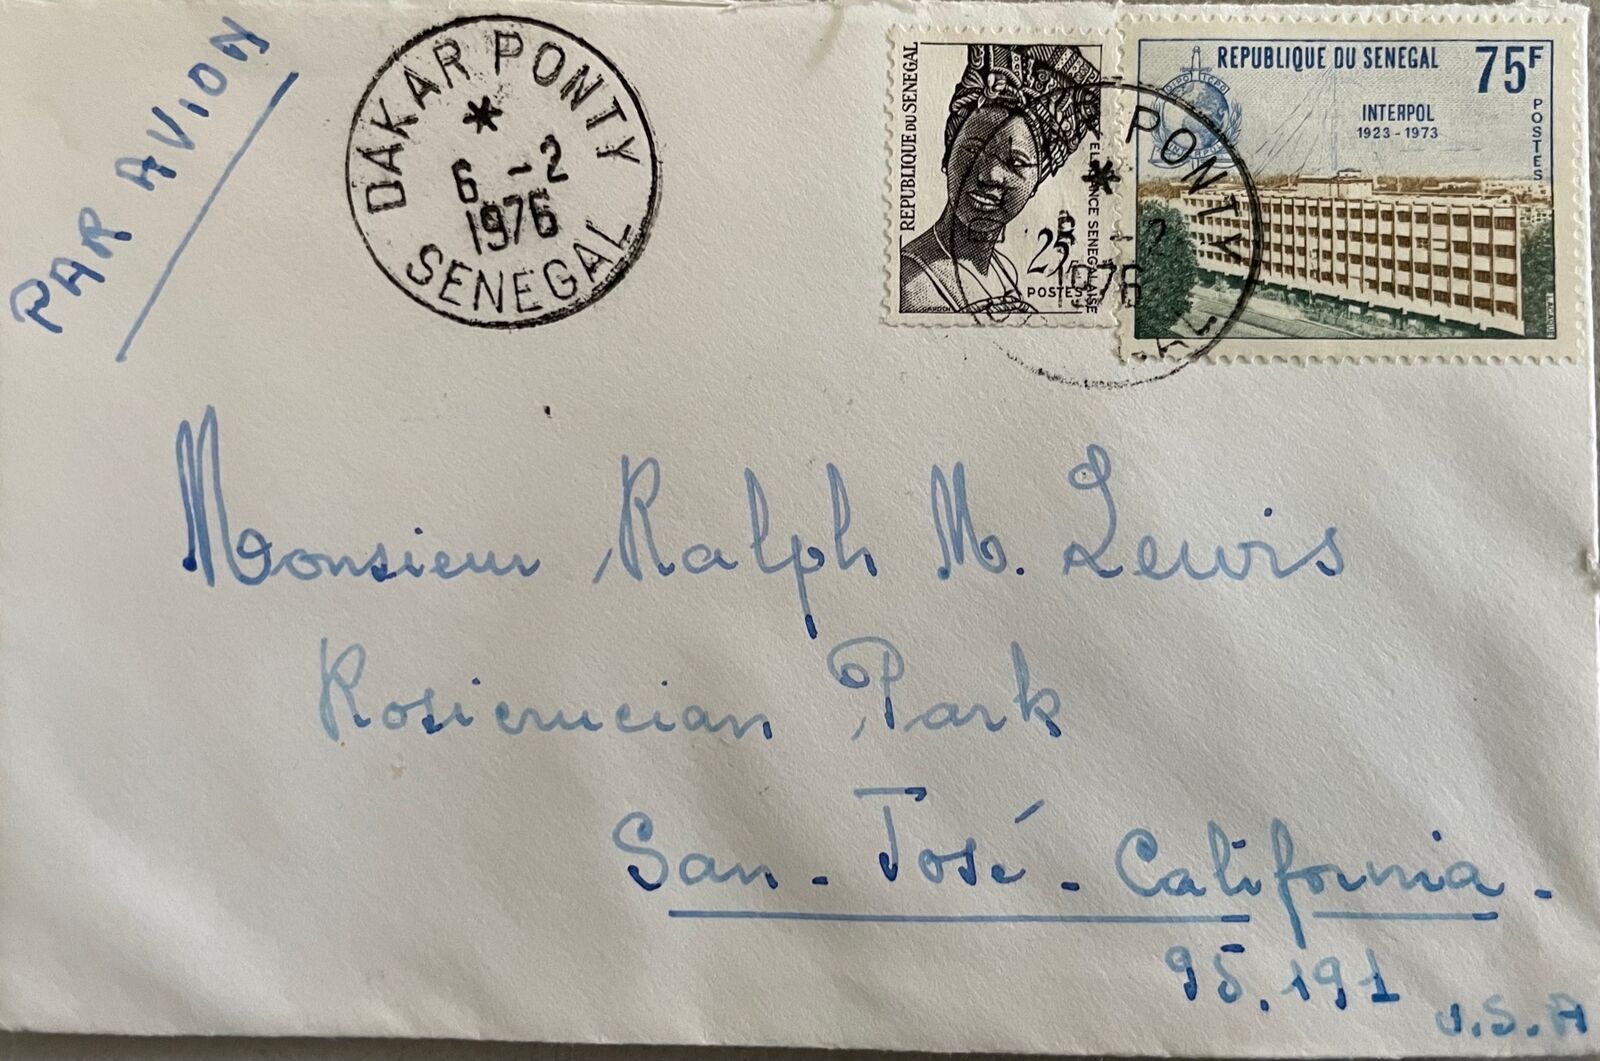 PAR AVION
DAKAR PONTY
6 -2
1976
SENEGAL
REPUBLIQUE DU SENEGAL
ELEGANCE SENEGALAISE
25F
POSTES
REPUBLIQUE DU SENEGAL
75F
INTERPOL
1923-1973
POSTES
PONTY
-2
1976
Monsieur Ralph M. Lewis
Rosicrucian Park
San-José-California-
95.191
U.S.A